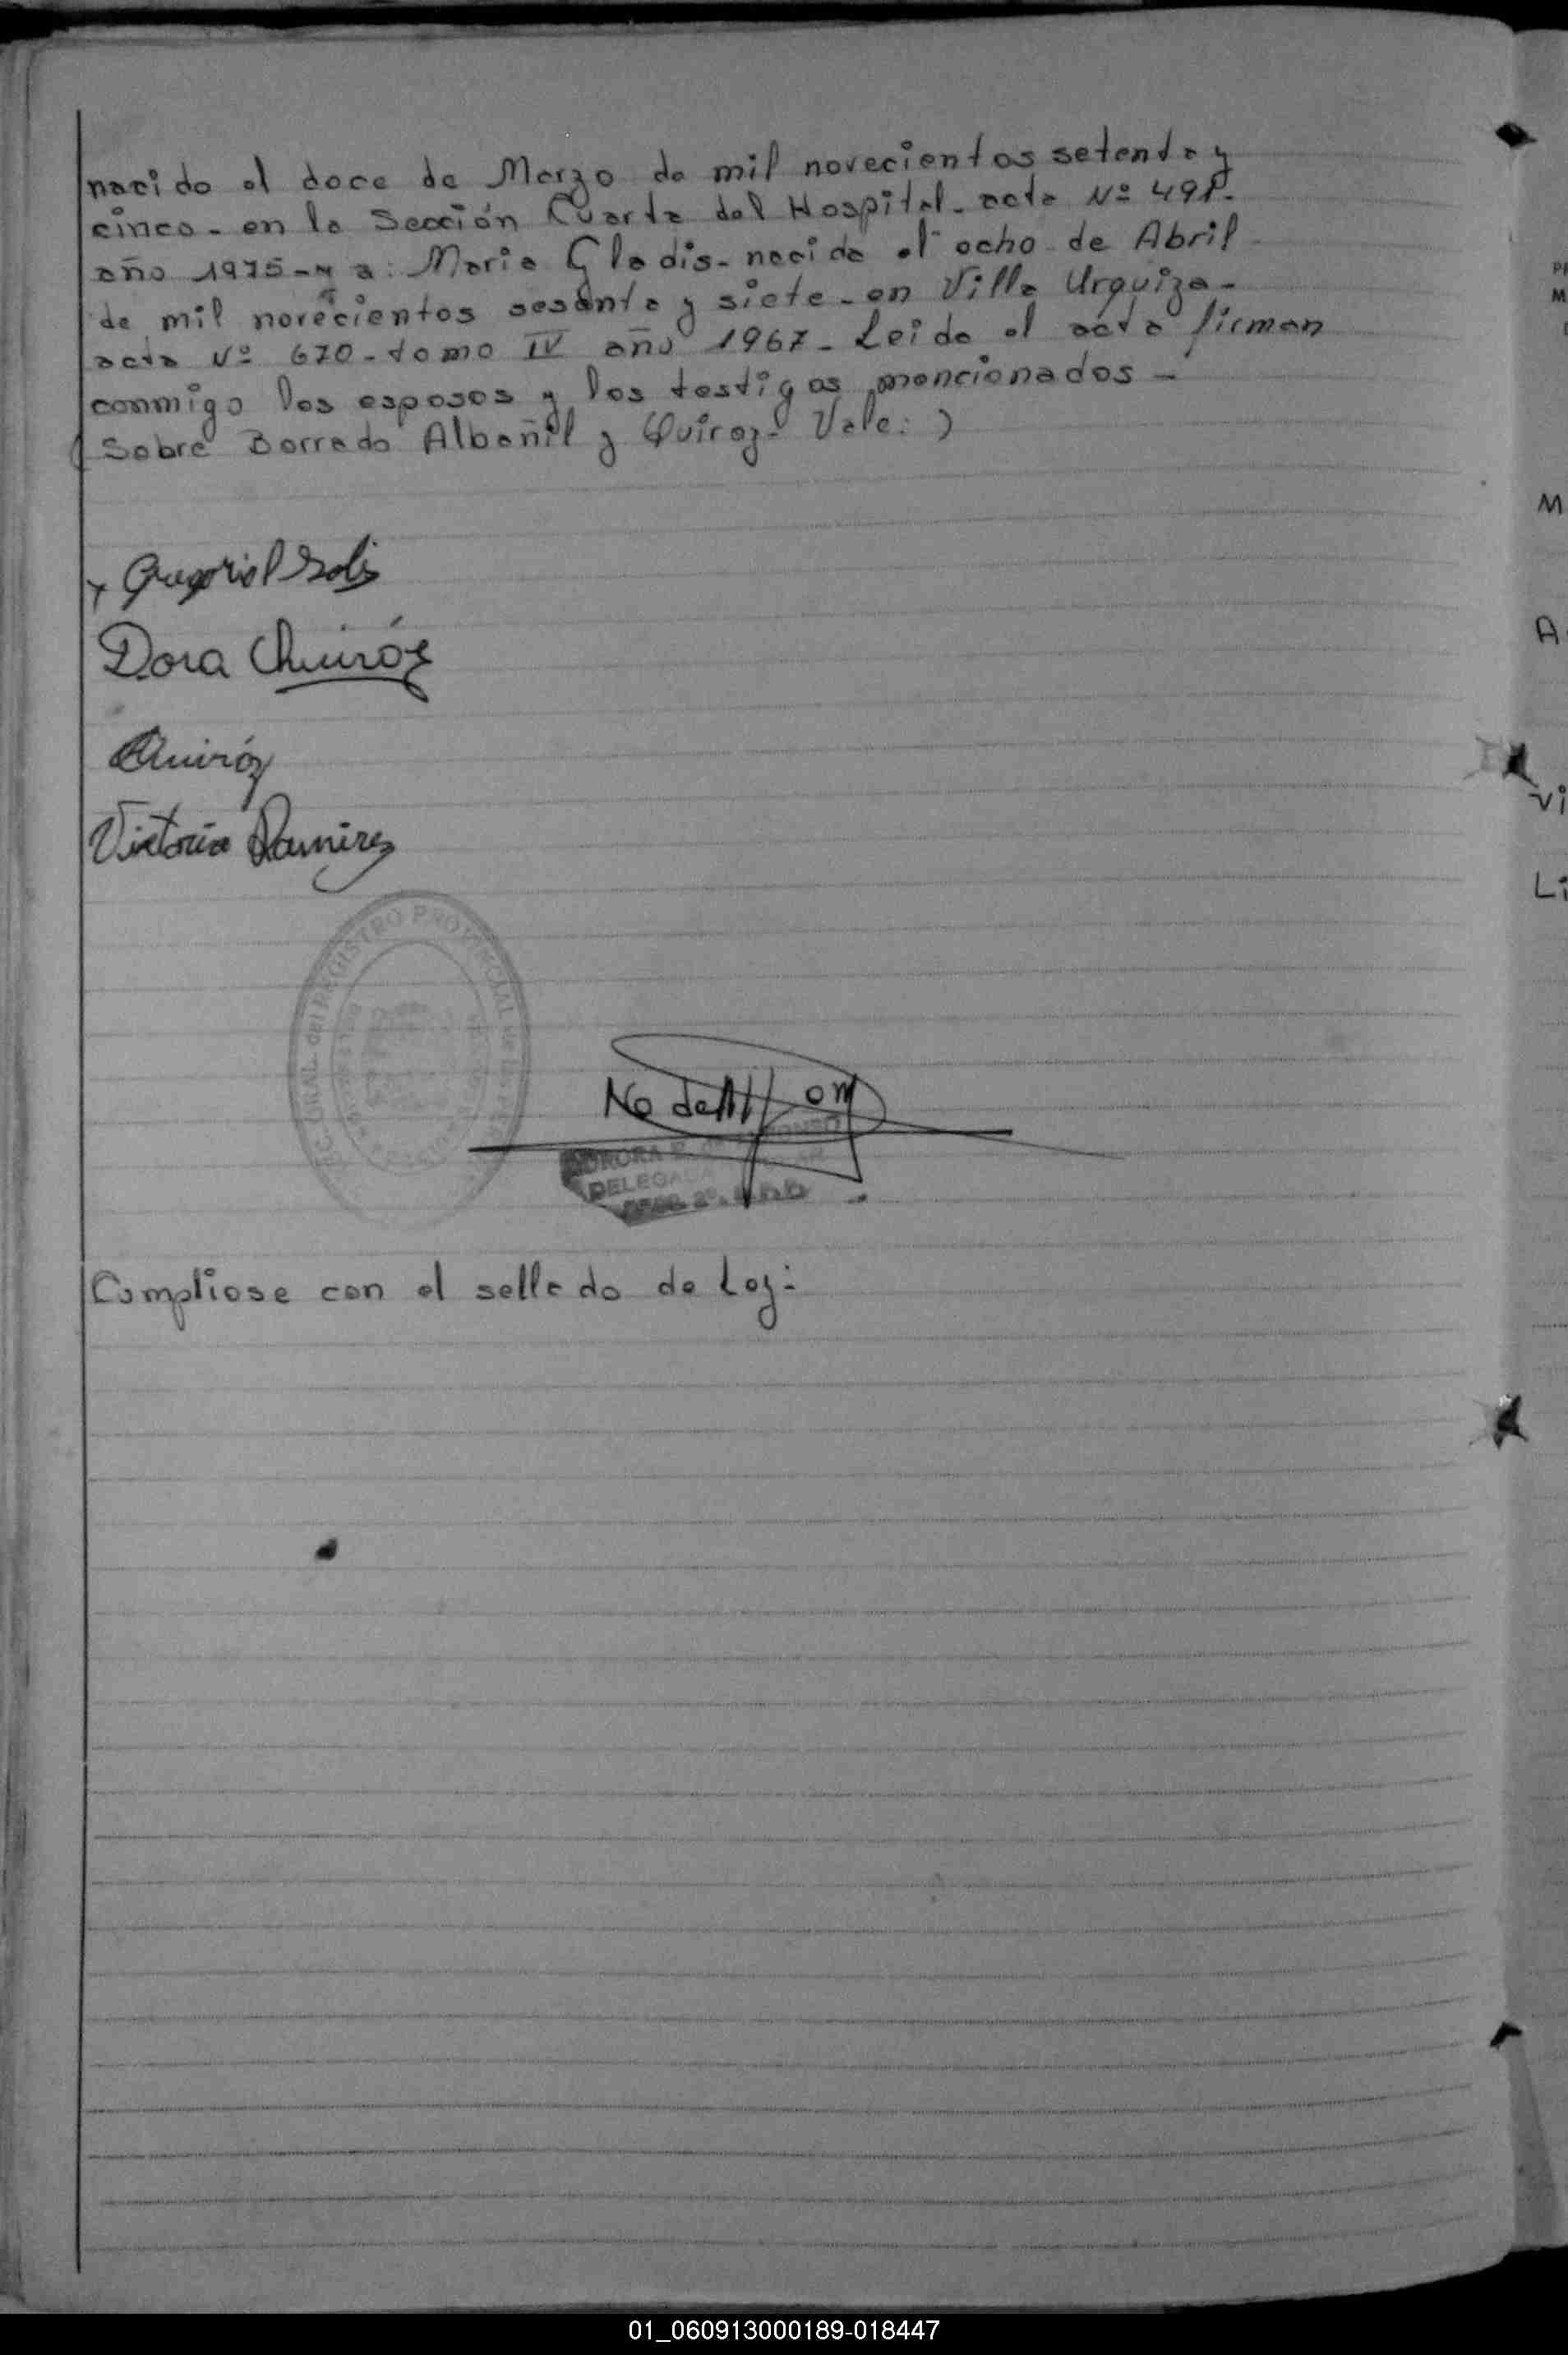 nacido el doce de Marzo de mil novecientos setenta y
cinco - en la Sección Cuarta del Hospital - acta Nº 491.
año 1975 - y a: Maria Gladis - nacida el ocho de Abril
de mil novecientos sesenta y siete - en Villa Urquiza -
acta Nº 670 - tomo IV año 1967 - Leida el acta firman
conmigo los esposos y los testigos mencionados -
(Sobre Borrado Albañil y Quiroz - Vale:)
Dora Quiróz
Quiróz
Victoria Ramirez
GRAL del REGISTRO PROVINCIAL de las
DELEGADA
Cumpliose con el sellado de Ley:
PI
M
M
A
Vi
Li
01_060913000189-018447